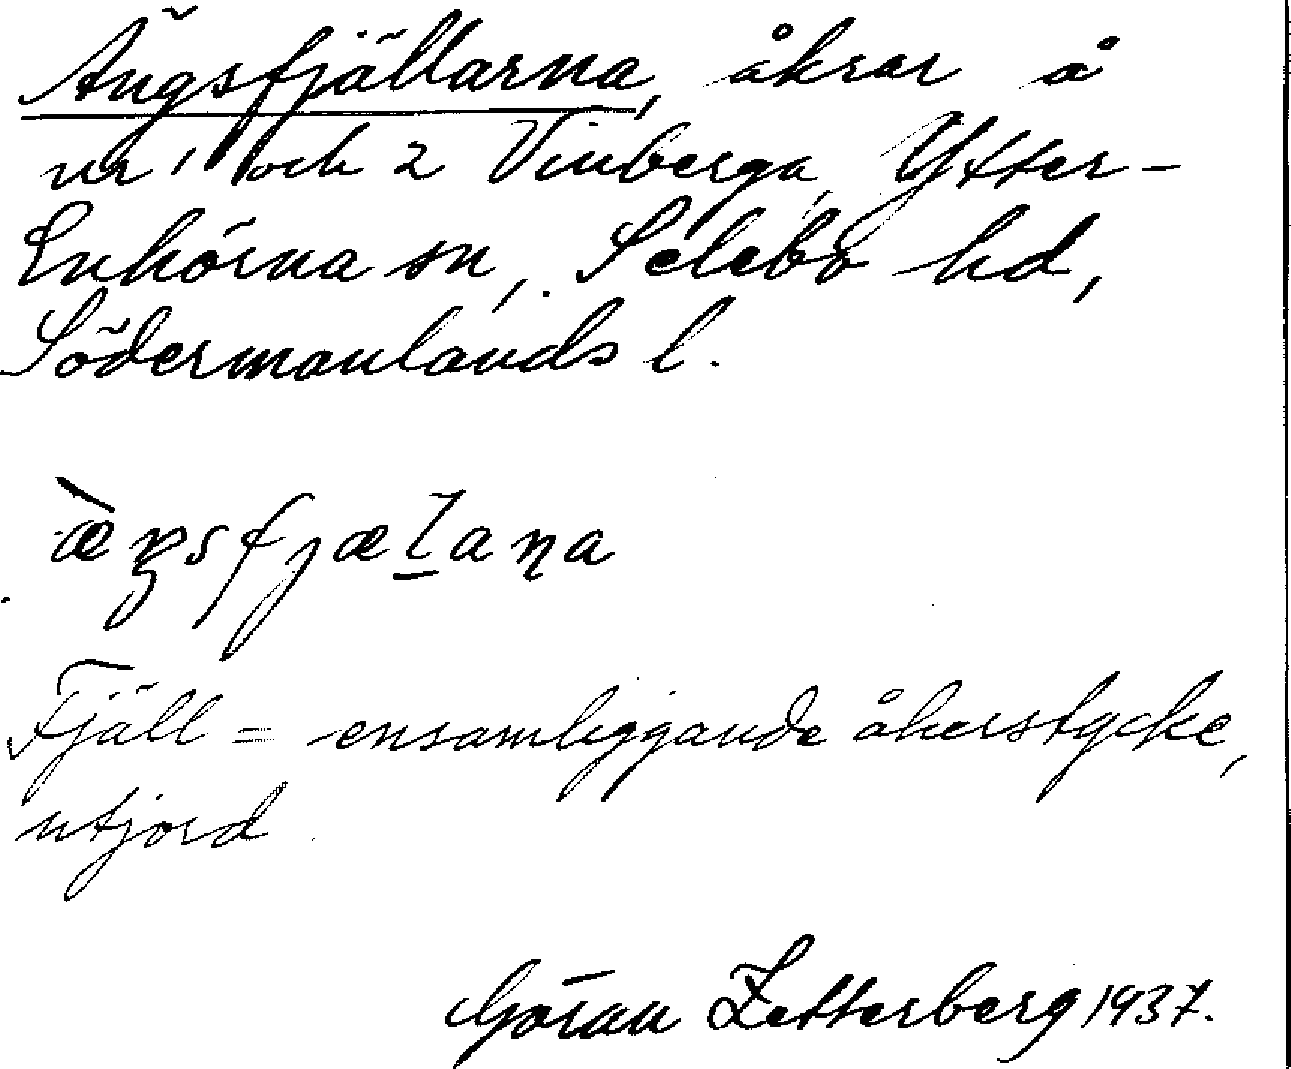 Ängsfjällarna, åkrar å
nr 1 och 2 Vinberga, Ytter-
Enhörna sn, Selebo hd,
Södermanlands l.
Fjäll = ensamliggande åkerstycke,
utjord
Göran Zetterberg 1937.